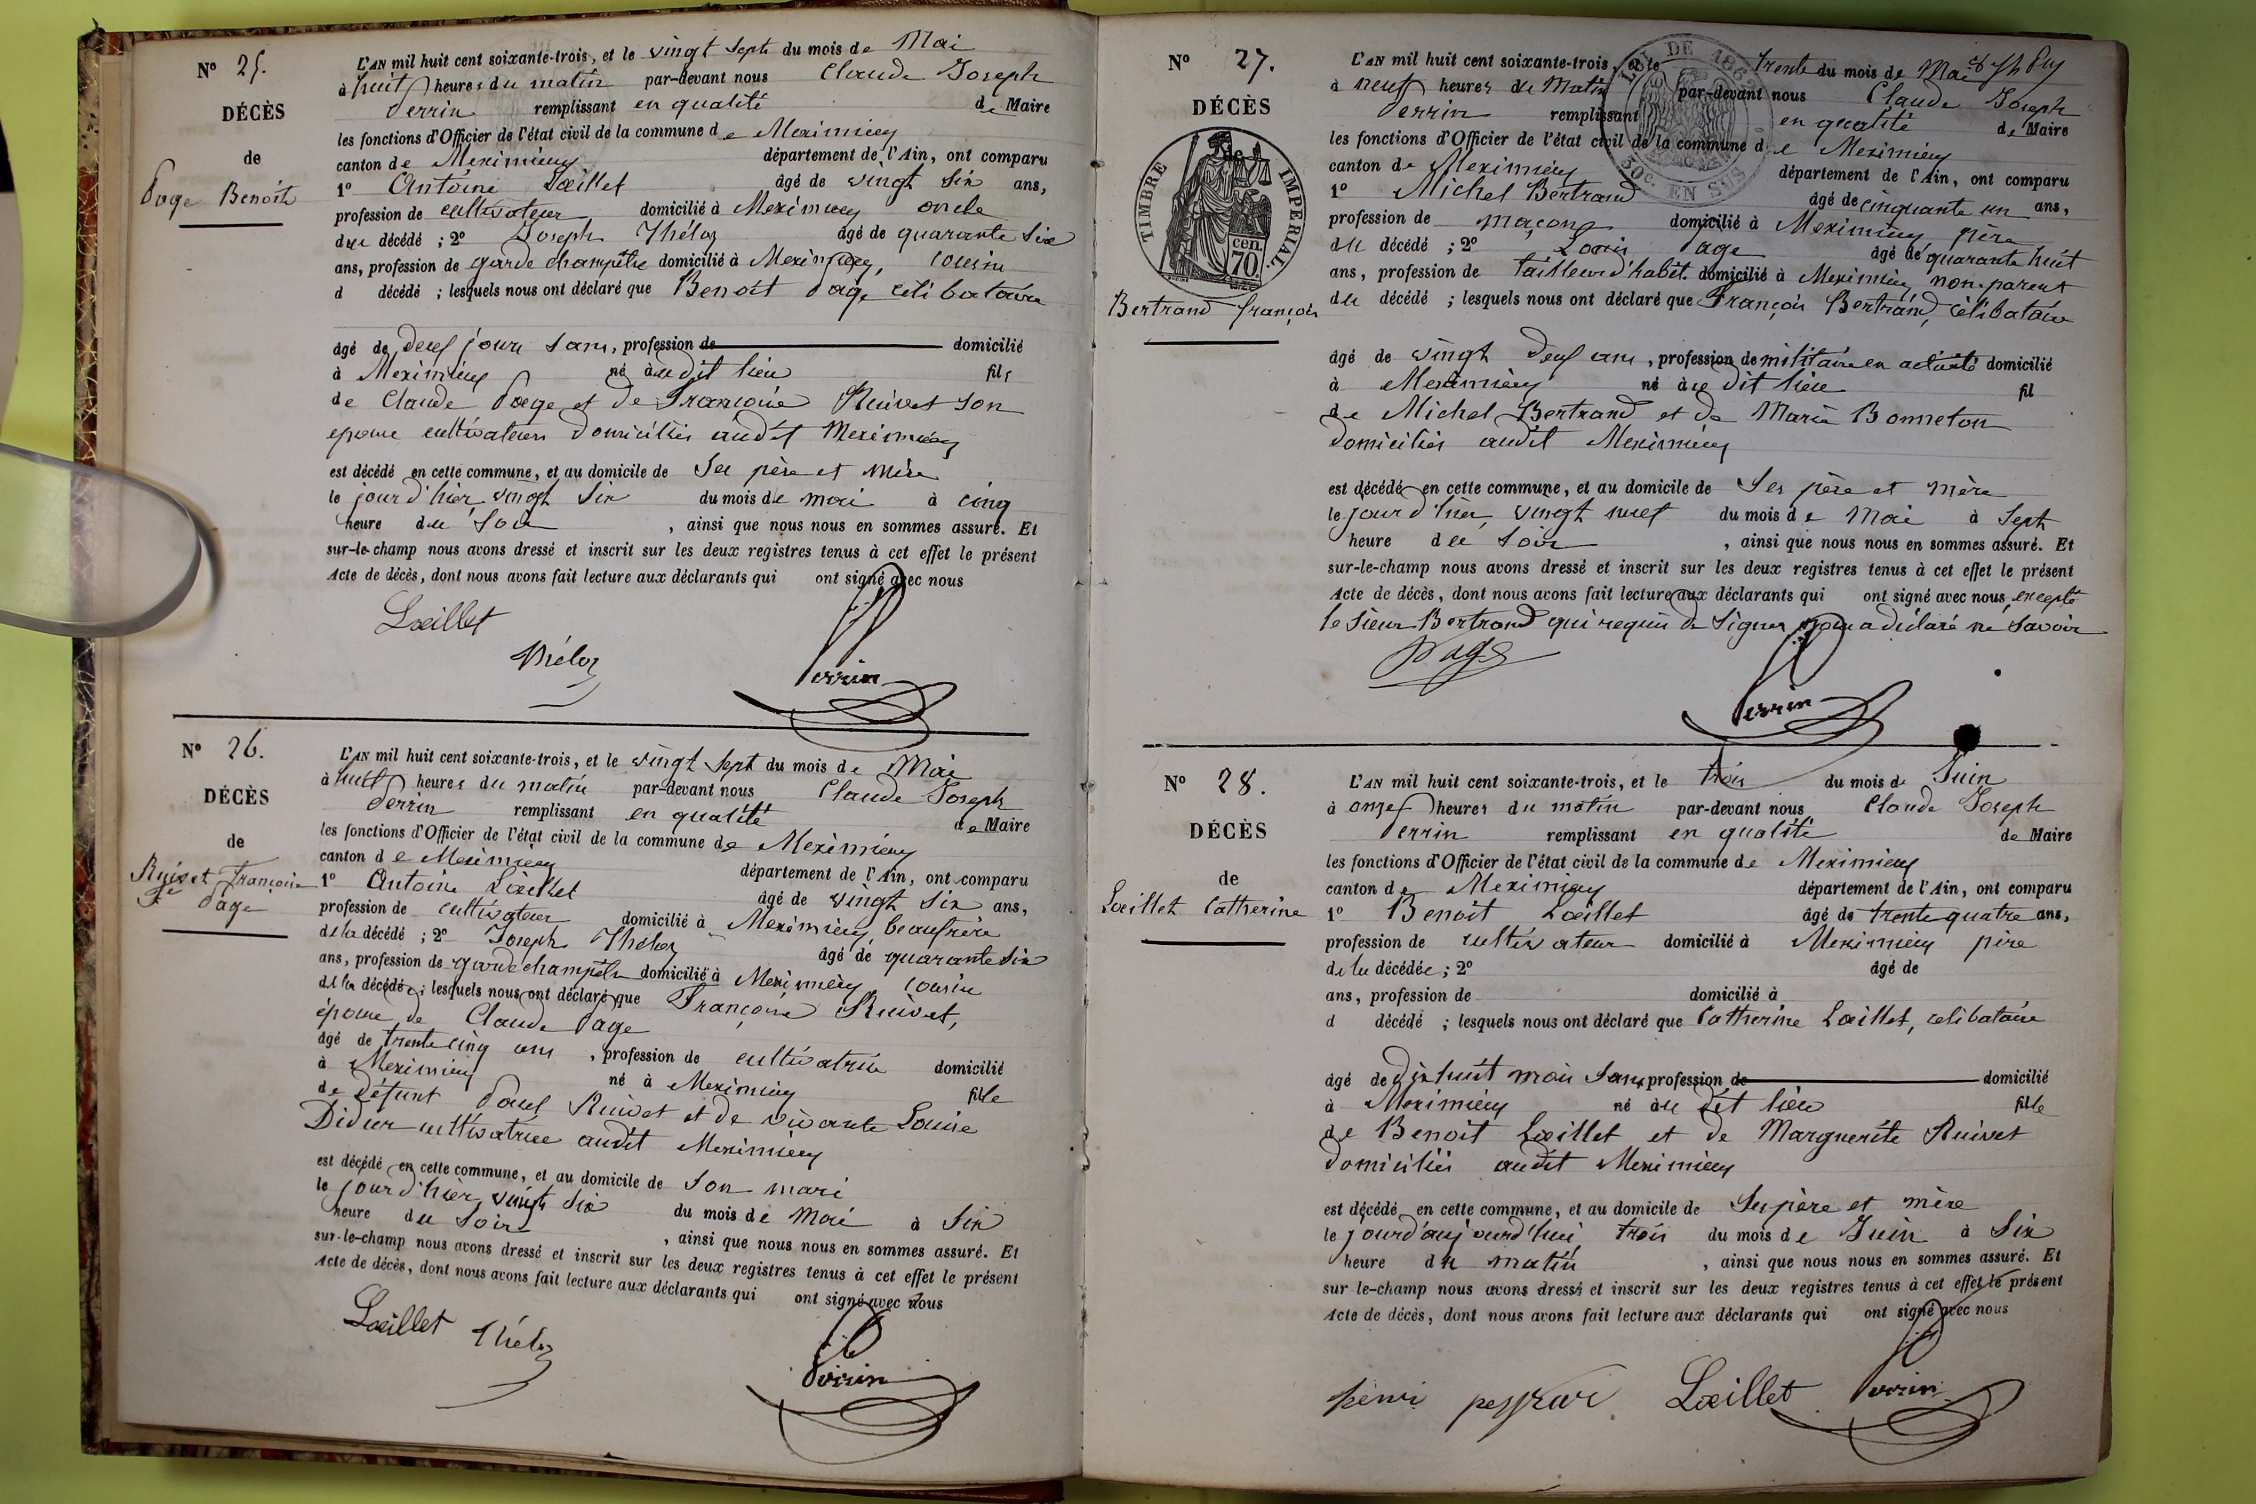 Nº 25.
DÉCÈS
de
Page Benoît
L'AN mil huit cent soixante-trois, et le vingt sept du mois de Mai
à huit heures du matin par-devant nous Claude Joseph
Perrin remplissant en qualité de Maire
les fonctions d'Officier de l'état civil de la commune de Meximieux
canton de Meximieux département de l'Ain, ont comparu
1º Antoine Lœillet âgé de vingt six ans,
profession de cultivateur domicilié à Meximieux oncle
du décédé ; 2º Joseph Théloz âgé de quarante six
ans, profession de garde champêtre domicilié à Meximieux, cousin
d décédé ; lesquels nous ont déclaré que Benoît Page célibataire
âgé de deux jours sans, profession de domicilié
à Meximieux né audit lieu fils
de Claude Page et de Françoise Ruivet son
épouse cultivateurs domiciliés audit Meximieux
est décédé en cette commune, et au domicile de Ses père et mère
le jour d'hier vingt six du mois de mai à cinq
heure du soir , ainsi que nous nous en sommes assuré. Et
sur-le-champ nous avons dressé et inscrit sur les deux registres tenus à cet effet le présent
Acte de décès, dont nous avons fait lecture aux déclarants qui ont signé avec nous
Lœillet
Théloz
Perrin
Nº 26.
DÉCÈS
de
Ruivet Françoise
fe Page
L'AN mil huit cent soixante-trois, et le vingt sept du mois de Mai
à huit heures du matin par-devant nous Claude Joseph
Perrin remplissant en qualité de Maire
les fonctions d'Officier de l'état civil de la commune de Meximieux
canton de Meximieux département de l'Ain, ont comparu
1º Antoine Lœillet âgé de vingt six ans,
profession de cultivateur domicilié à Meximieux, beaufrère
de la décédé ; 2º Joseph Théloz âgé de quarante six
ans, profession de garde champêtre domicilié à Meximieux, cousin
de la décédée ; lesquels nous ont déclaré que Françoise Ruivet,
épouse de Claude Page
âgé de trente cinq ans , profession de cultivatrice domicilié
à Meximieux né à Meximieux fille
de défunt Paul Ruivet et de vivante Louise
Didier cultivatrice audit Meximieux
est décédé en cette commune, et au domicile de Son mari
le jour d'hier vingt six du mois de Mai à Six
heure du Soir , ainsi que nous nous en sommes assuré. Et
sur-le-champ nous avons dressé et inscrit sur les deux registres tenus à cet effet le présent
Acte de décès, dont nous avons fait lecture aux déclarants qui ont signé avec nous
Lœillet Théloz
Perrin
Nº 27.
DÉCÈS
de
TIMBRE IMPERIAL.
70 cen.
Bertrand françois
LOI DE 1862
30c. EN SUS
L'AN mil huit cent soixante-trois, et le trente du mois de Mai
à neuf heures du Matin par-devant nous Claude Joseph
Perrin remplissant en qualité de Maire
les fonctions d'Officier de l'état civil de la commune de Meximieux
canton de Meximieux département de l'Ain, ont comparu
1º Michel Bertrand âgé de cinquante un ans,
profession de maçon domicilié à Meximieux père
du décédé ; 2º Louis Page âgé de quarante huit
ans, profession de tailleur d'habit. domicilié à Meximieux non parent
du décédé ; lesquels nous ont déclaré que François Bertrand, célibataire
âgé de vingt deux ans, profession de militaire en activité domicilié
à Meximieux né audit lieu fil
de Michel Bertrand et de Marie Bonneton
domiciliés audit Meximieux
est décédé en cette commune, et au domicile de Ses père et mère
le jour d'hier, vingt neuf du mois de Mai à Sept
heure du soir , ainsi que nous nous en sommes assuré. Et
sur-le-champ nous avons dressé et inscrit sur les deux registres tenus à cet effet le présent
Acte de décès, dont nous avons fait lecture aux déclarants qui ont signé avec nous, excepté
le Sieur Bertrand qui requis de Signer nous a déclaré ne Savoir
Page
Perrin
Nº 28.
DÉCÈS
de
Lœillet Catherine
L'AN mil huit cent soixante-trois, et le trois du mois de Juin
à onze heures du matin par-devant nous Claude Joseph
Perrin remplissant en qualité de Maire
les fonctions d'Officier de l'état civil de la commune de Meximieux
canton de Meximieux département de l'Ain, ont comparu
1º Benoît Lœillet âgé de trente quatre ans,
profession de cultivateur domicilié à Meximieux père
de la décédée ; 2º âgé de
ans, profession de domicilié à
d décédé ; lesquels nous ont déclaré que Catherine Lœillet, célibataire
âgé de dix huit mois Sans profession de domicilié
à Meximieux né audit lieu fille
de Benoît Lœillet et de Marguerite Ruivet
domiciliés audit Meximieux
est décédé en cette commune, et au domicile de Ses père et mère
le jour d'aujourd'hui trois du mois de Juin à Six
heure du matin , ainsi que nous nous en sommes assuré. Et
sur-le-champ nous avons dressé et inscrit sur les deux registres tenus à cet effet le présent
Acte de décès, dont nous avons fait lecture aux déclarants qui ont signé avec nous
Lœillet Perrin